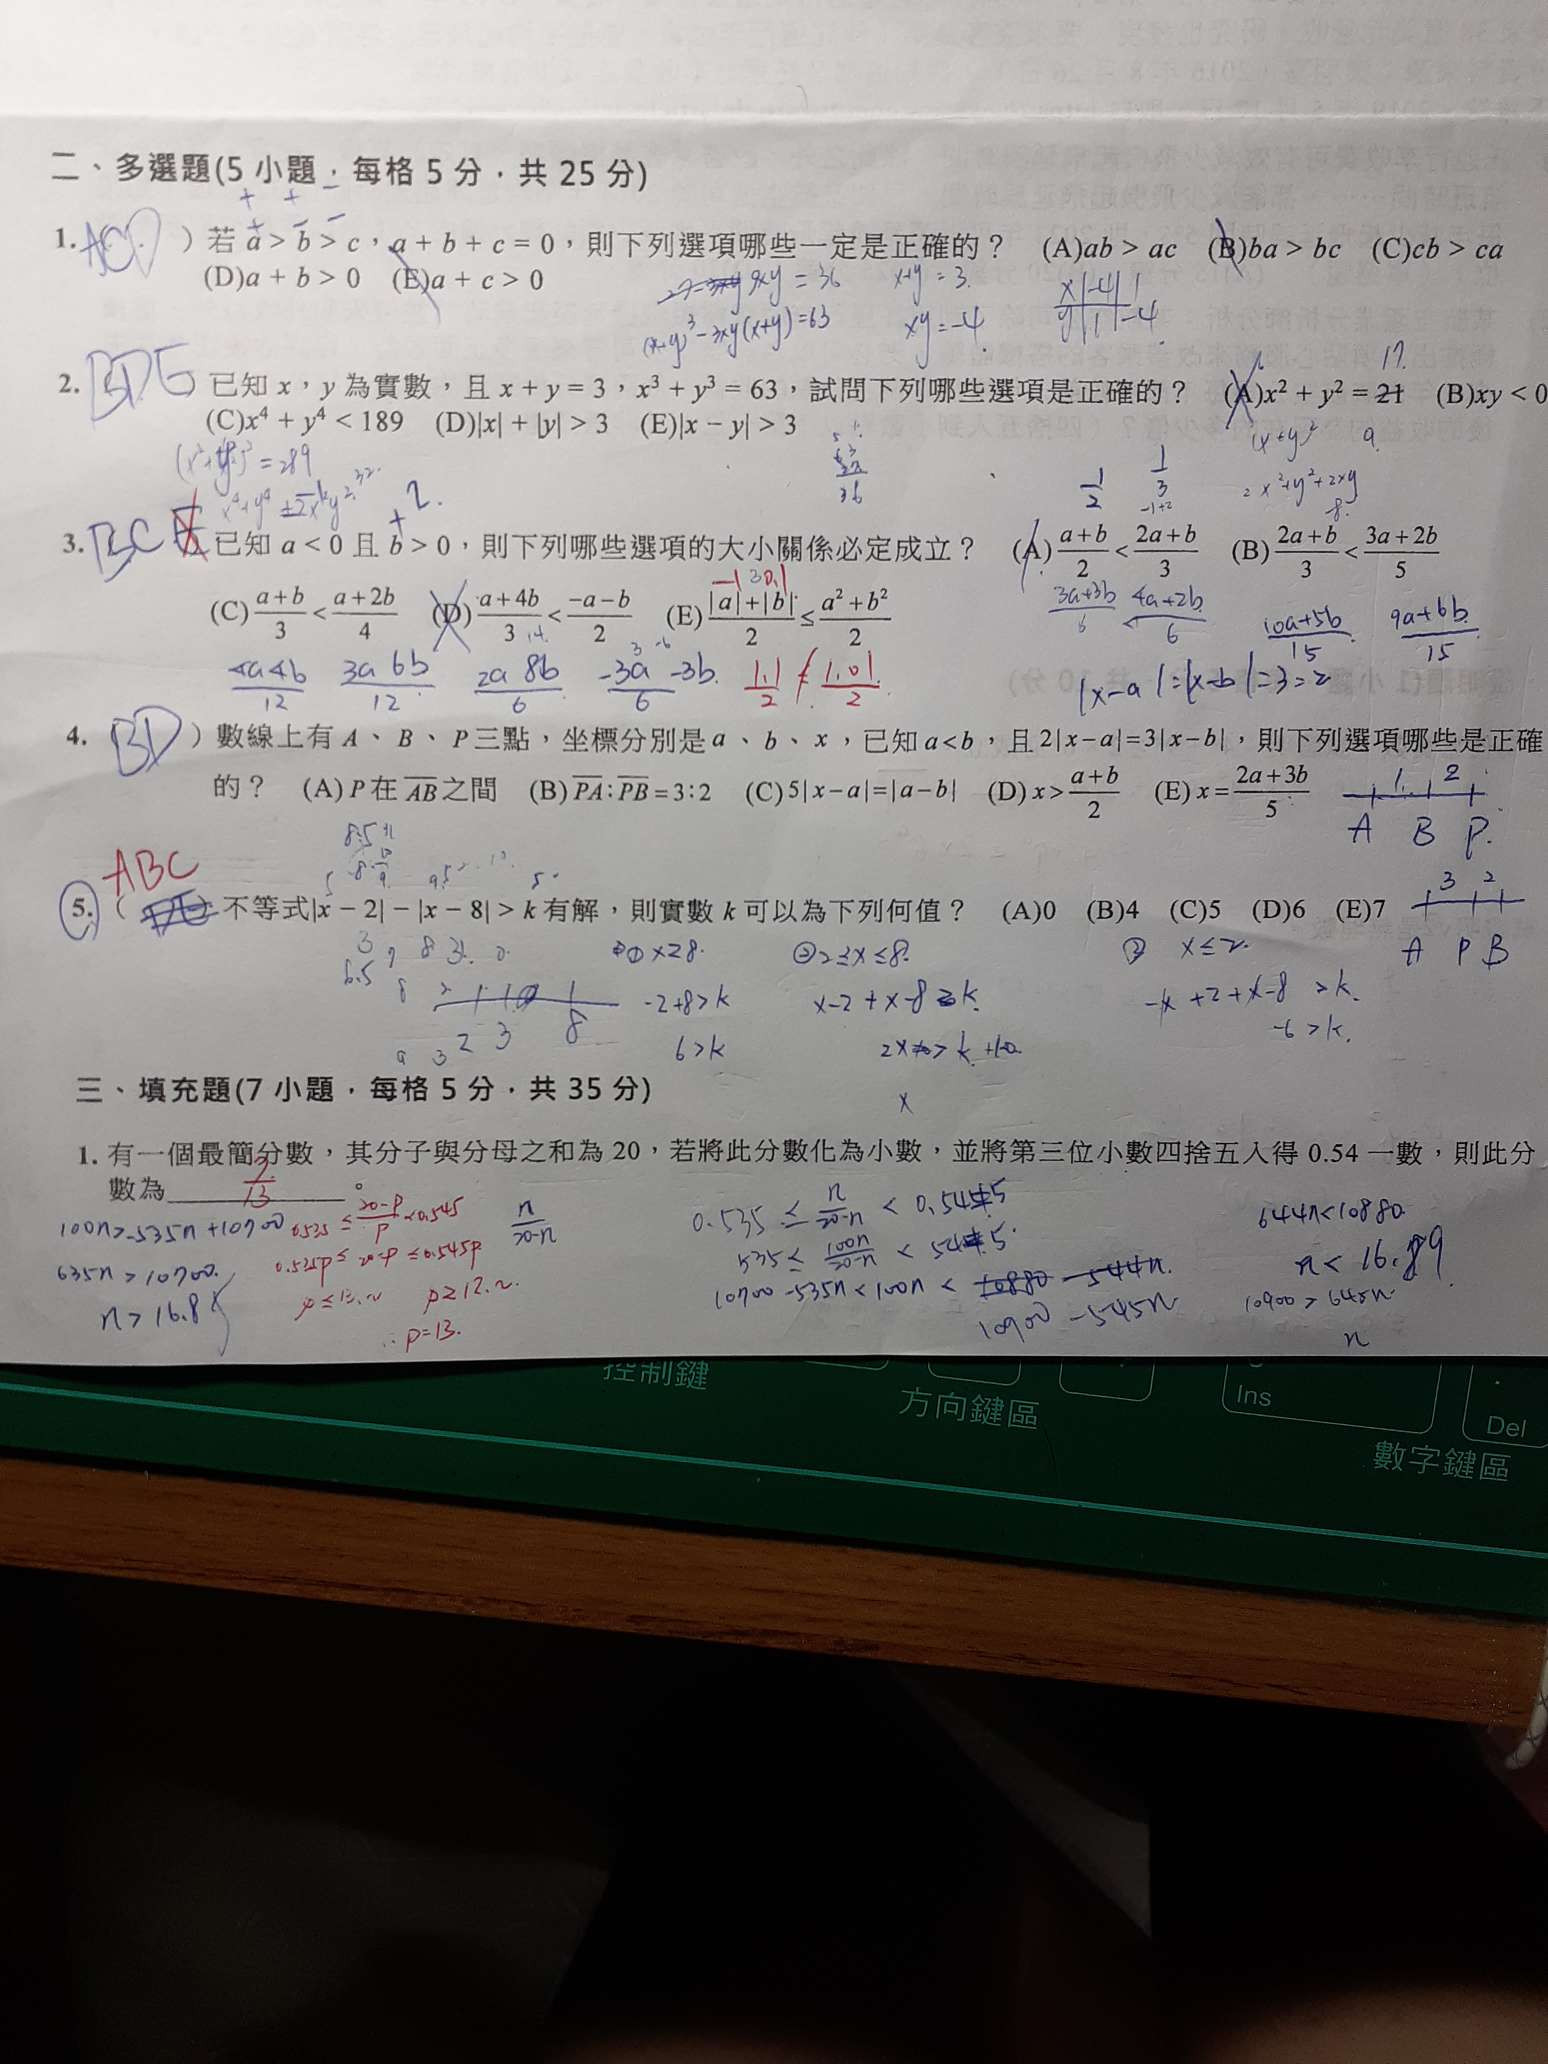 二、多選題(5 小題，每格 5 分，共 25 分)
1. ACD ) 若 a > b > c，a + b + c = 0，則下列選項哪些一定是正確的？ (A)ab > ac (B)ba > bc (C)cb > ca
(D)a + b > 0 (E)a + c > 0
9xy = 36 x+y = 3.
(x+y)³ - 3xy(x+y) = 63 xy = -4.
x | -4 | 1
y | 1 | -4
17.
2. BDE 已知 x，y 為實數，且 x + y = 3，x³ + y³ = 63，試問下列哪些選項是正確的？ (A)x² + y² = 21 (B)xy < 0
(C)x⁴ + y⁴ < 189 (D)|x| + |y| > 3 (E)|x − y| > 3
(x+y)² 9
x²+y²+2xy
-8.
3. BCE 已知 a < 0 且 b > 0，則下列哪些選項的大小關係必定成立？ (A) (a+b)/2 < (2a+b)/3 (B) (2a+b)/3 < (3a+2b)/5
(C) (a+b)/3 < (a+2b)/4 (D) (a+4b)/3 < (−a−b)/2 (E) (|a|+|b|)/2 ≤ (a²+b²)/2
(3a+3b)/6 < (4a+2b)/6 (10a+5b)/15 (9a+6b)/15
(4a 4b)/12 (3a 6b)/12 (2a 8b)/6 (-3a -3b)/6 1.1/2 ≠ 1.01/2
|x-a|=|x-b|=3=2
4. BD ) 數線上有 A、B、P三點，坐標分別是 a、b、x，已知 a<b，且 2|x−a|=3|x−b|，則下列選項哪些是正確
的？ (A) P 在 AB 之間 (B) PA:PB = 3:2 (C) 5|x−a|=|a−b| (D) x > (a+b)/2 (E) x = (2a+3b)/5
1 2
A B P.
ABC
5. ( 不等式|x − 2| − |x − 8| > k 有解，則實數 k 可以為下列何值？ (A)0 (B)4 (C)5 (D)6 (E)7
3 2
A P B
① x≥8. ② 2≤x≤8. ③ x≤2.
-2+8>k x-2+x-8≥k. -x+2+x-8 >k.
2 3 8 6>k -6>k.
三、填充題(7 小題，每格 5 分，共 35 分)
1. 有一個最簡分數，其分子與分母之和為 20，若將此分數化為小數，並將第三位小數四捨五入得 0.54 一數，則此分
數為 7/13 。
100n>-535n+10700 0.535 ≤ (20-p)/p <0.545 n/(20-n) 0.535 ≤ n/(20-n) < 0.545 644n<10880
635n>10700. 0.535p≤ 20-p ≤0.545p 535≤ 100n/(20-n) < 545. n< 16.89
n>16.8 p≥12.~ 10700-535n<100n< 10900-545n 10900>645n.
∴p=13. n
控制鍵
方向鍵區
Ins
Del
數字鍵區